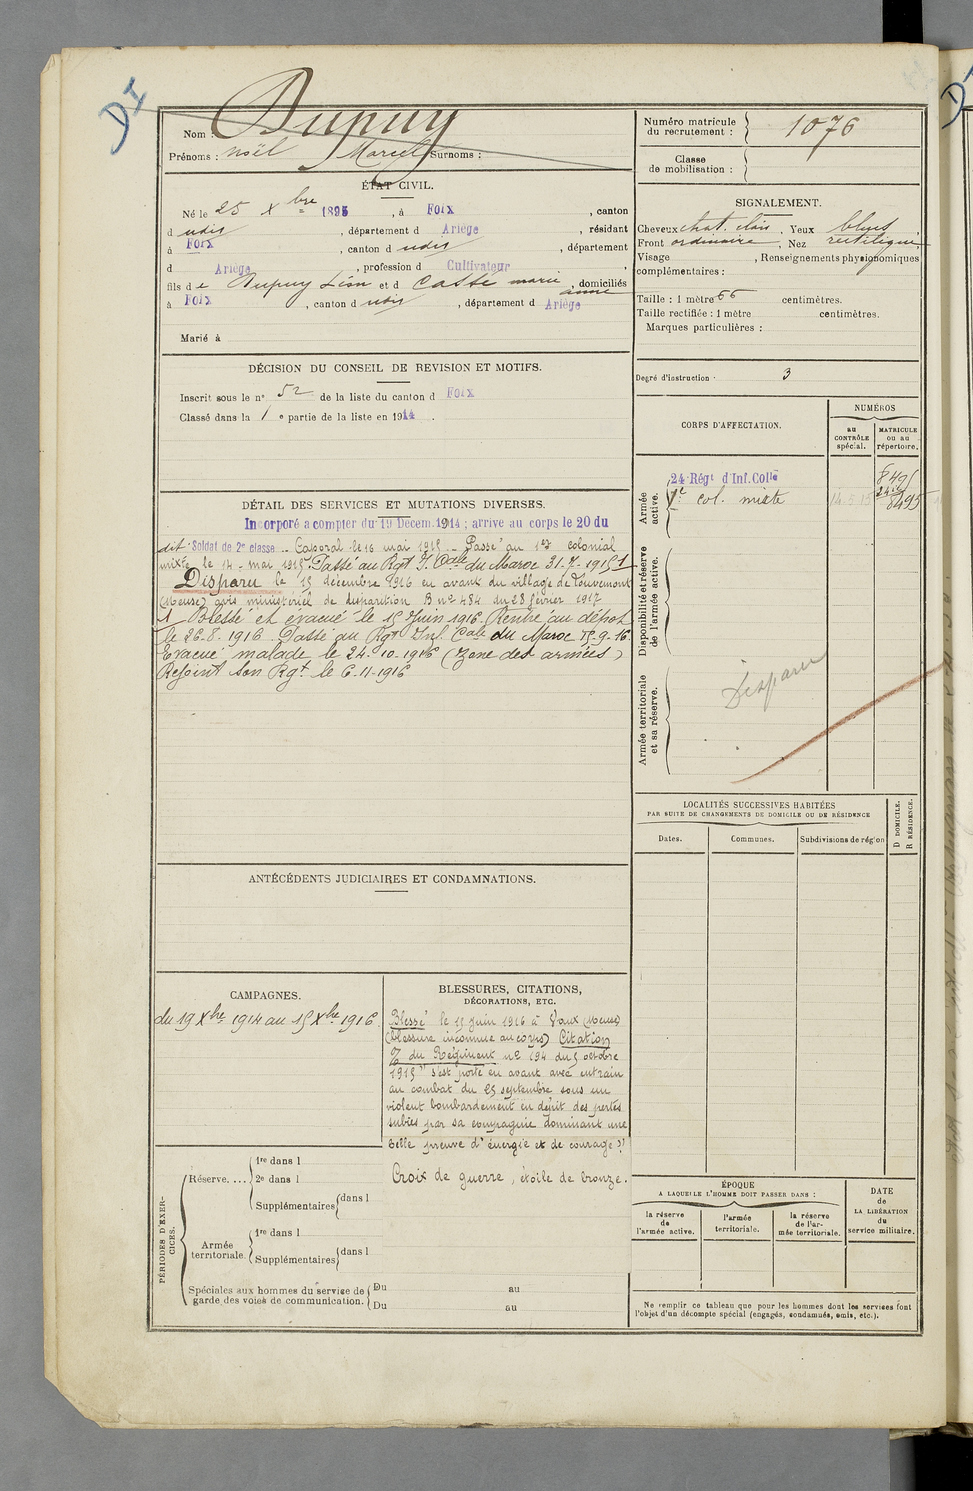 DI
Nom : Dupuy
Prénoms : Noël Marcel Surnoms :
ÉTAT CIVIL.
Né le 25 Xbre 1895, à Foix, canton
d udit, département d Ariège, résidant
à Foix, canton d udit, département
d Ariège, profession d Cultivateur,
fils de Dupuy Léon et d Casse marie anne, domiciliés
à Foix, canton d udit, département d Ariège
Marié à
DÉCISION DU CONSEIL DE REVISION ET MOTIFS.
Inscrit sous le n° 52 de la liste du canton d Foix
Classé dans la 1 e partie de la liste en 1914.
DÉTAIL DES SERVICES ET MUTATIONS DIVERSES.
Incorporé a compter du 19 Décem. 1914 ; arrivé au corps le 20 du
dit Soldat de 2e classe _ Caporal le 16 mai 1915 _ Passé au 1er colonial
mixte le 14 - mai 1915. Passé au Rgt I. Cale du Maroc 31-7-1915 1
Disparu le 15 décembre 1916 en avant du village de Louvemont
(Meuse) avis ministériel de disparition B no 484 du 28 février 1917
1 Blessé et évacué le 15 Juin 1916 Rentré au dépot
le 26.8.1916. Passé au Rgt Inf. Cale du Maroc 15.9.16
Evacué malade le 24-10-1916 (Zone des armées)
Rejoint son Rgt le 6-11-1916
ANTÉCÉDENTS JUDICIAIRES ET CONDAMNATIONS.
CAMPAGNES.
du 19 Xbre 1914 au 15 Xbre 1916
BLESSURES, CITATIONS,
DÉCORATIONS, ETC.
Blessé le 15 juin 1916 à Vaux (Meuse)
(blessure inconnue au corps) Citation
% du Régiment no 194 du 5 octobre
1915 "s'est porté en avant avec entrain
au combat du 25 septembre sous un
violent bombardement en dépit des pertes
subies par sa compagnie dominant une
belle preuve d'énergie et de courage"
Croix de guerre, étoile de bronze.
PÉRIODES D'EXERCICES.
Réserve....
1re dans l
2e dans l
Supplémentaires dans l
Armée territoriale.
1re dans l
Supplémentaires dans l
Spéciales aux hommes du service de garde des voies de communication.
Du au
Du au
Numéro matricule du recrutement : 1076
Classe de mobilisation :
SIGNALEMENT.
Cheveux chat. clair, Yeux bleus,
Front ordinaire, Nez rectiligne
Visage , Renseignements physionomiques
complémentaires :
Taille : 1 mètre 66 centimètres.
Taille rectifiée : 1 mètre centimètres.
Marques particulières :
Degré d'instruction : 3
CORPS D'AFFECTATION.
NUMÉROS
au CONTRÔLE spécial.
MATRICULE ou au répertoire.
Armée active.
24 Régt d'Inf. Colle
1r col. mixte 14.5.15 8495
Disponibilité et réserve de l'armée active.
Armée territoriale et sa réserve.
Disparu
LOCALITÉS SUCCESSIVES HABITÉES
PAR SUITE DE CHANGEMENTS DE DOMICILE OU DE RÉSIDENCE
Dates. Communes. Subdivisions de région
D DOMICILE.
R RÉSIDENCE.
ÉPOQUE
A LAQUELLE L'HOMME DOIT PASSER DANS :
la réserve de l'armée active.
l'armée territoriale.
la réserve de l'armée territoriale.
DATE de LA LIBÉRATION du service militaire.
Ne remplir ce tableau que pour les hommes dont les services font
l'objet d'un décompte spécial (engagés, condamnés, omis, etc.).